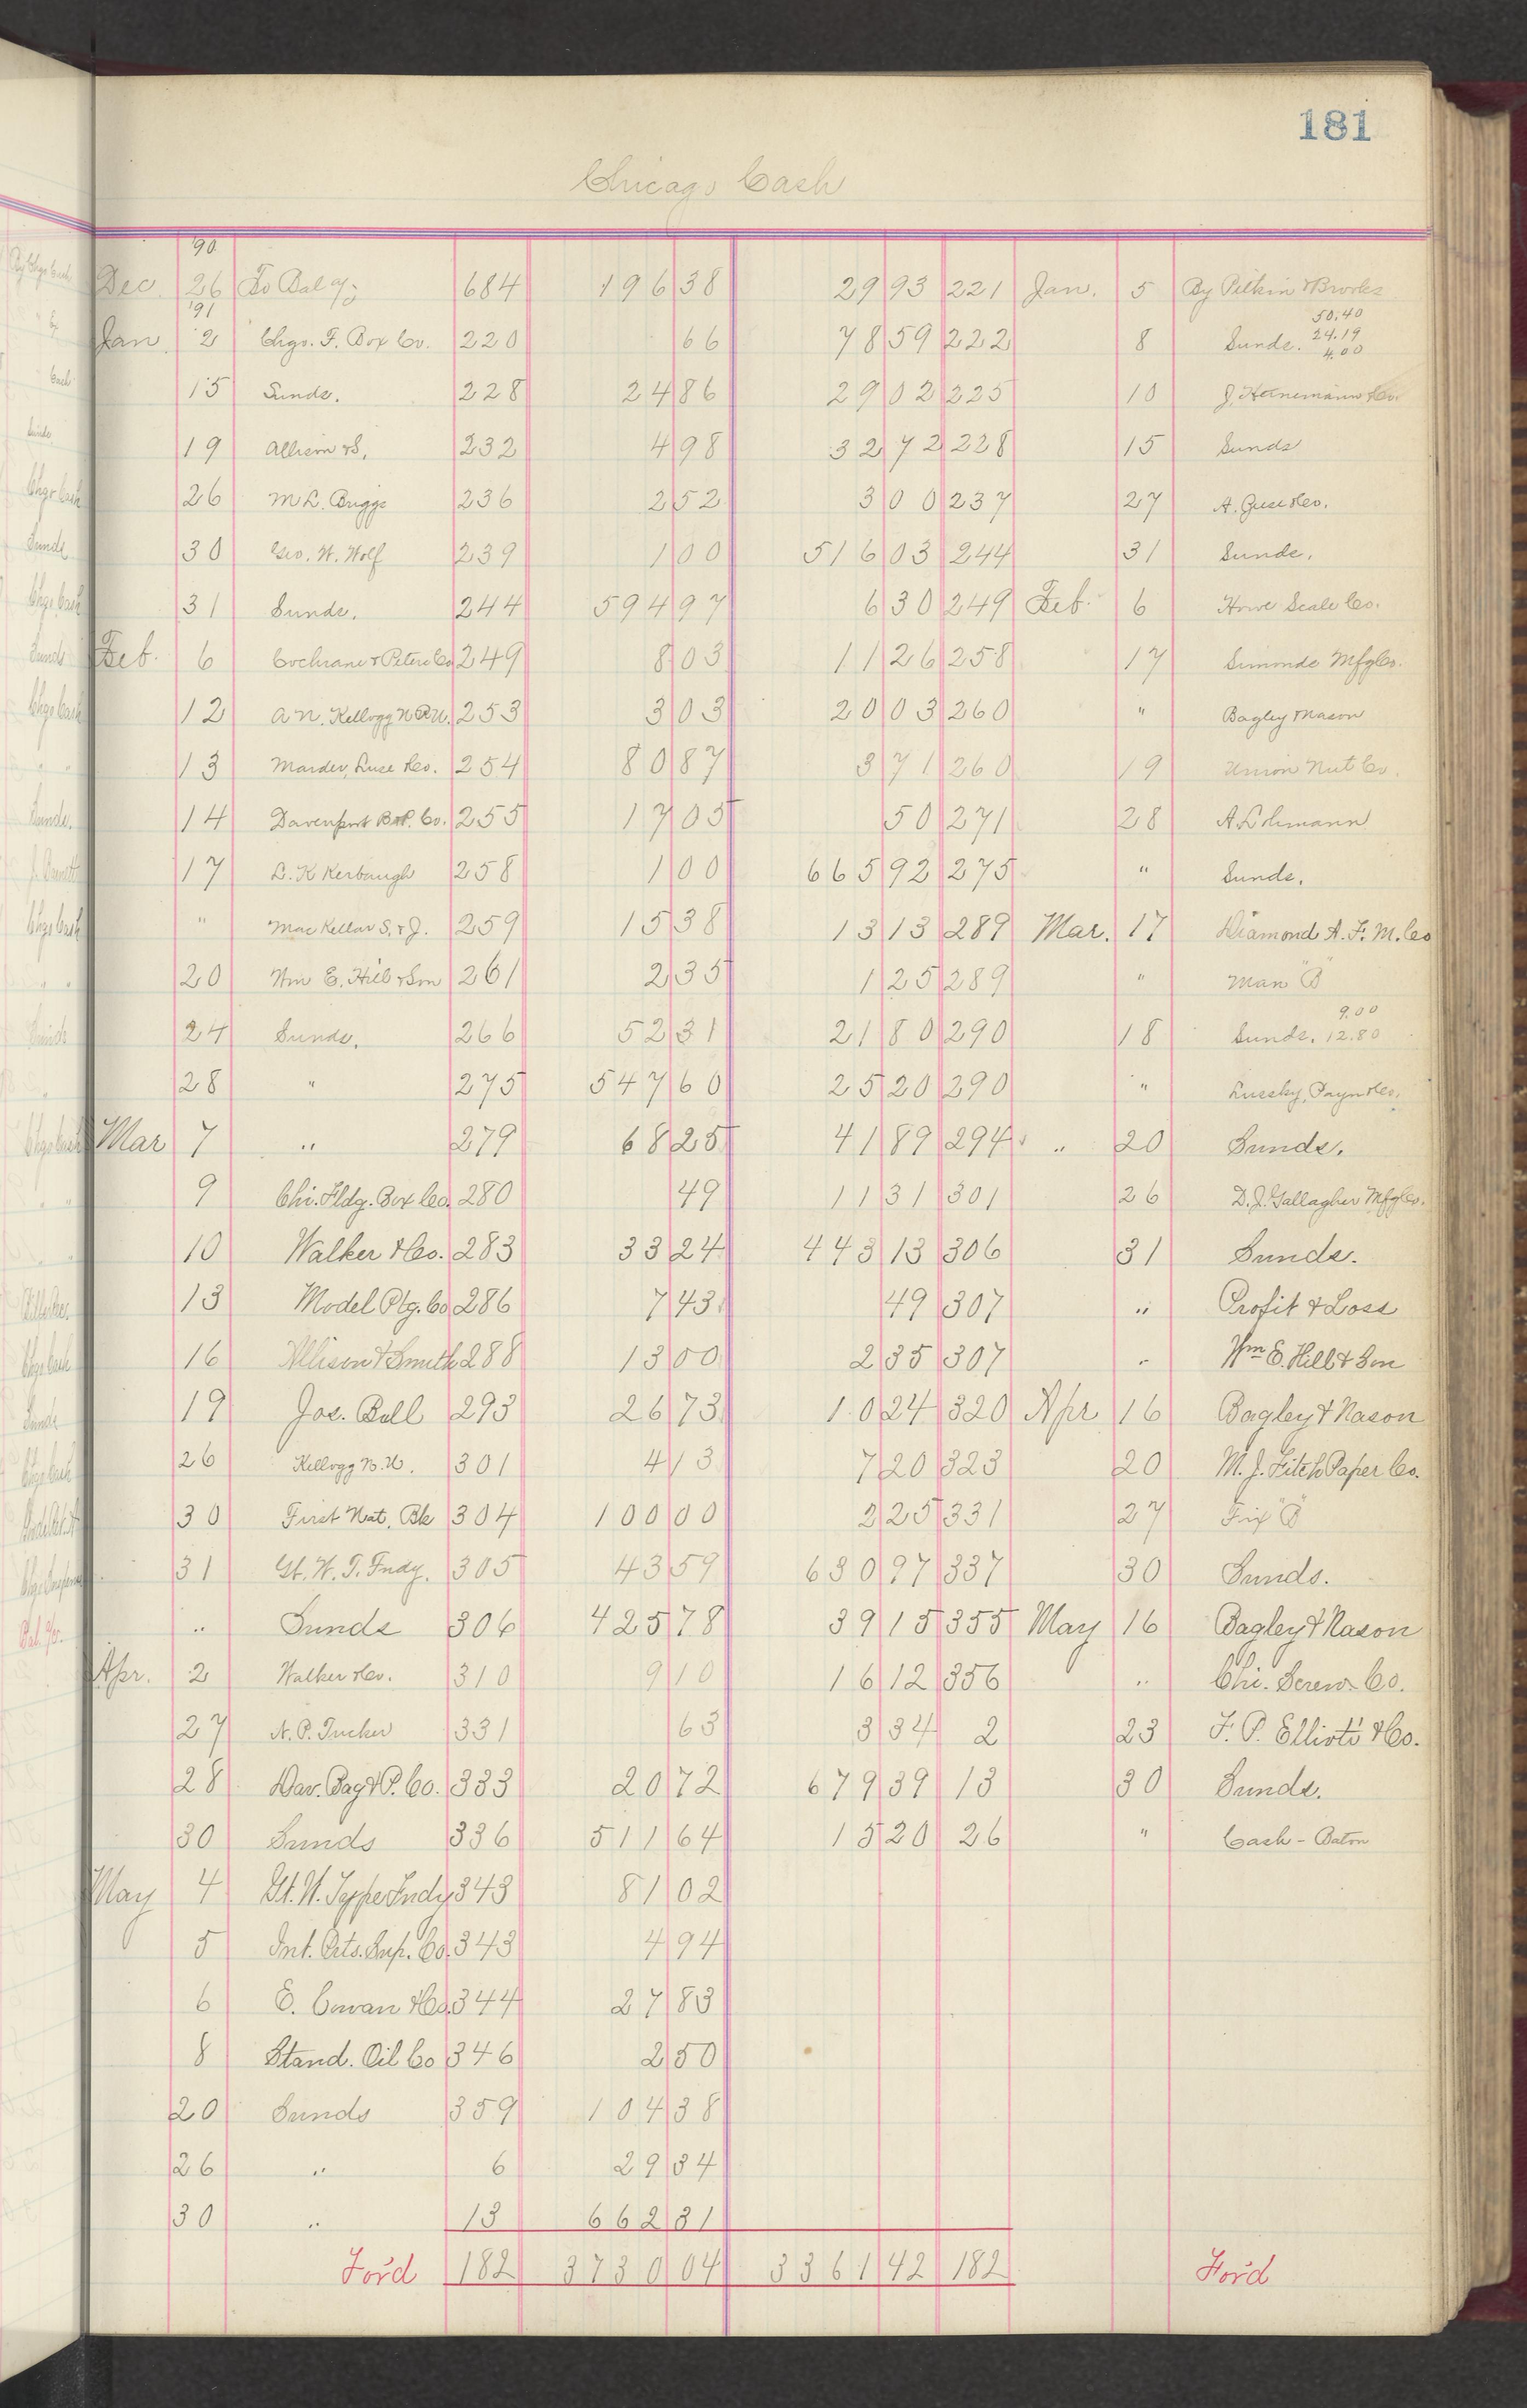 181
Chicago Cash
'90
Dec 26 To Bal 684 196 38 29 93 221 Jan. 5 By Pitkin & Brooks
'91 50.40
Jan. 2 Chgo. F. Box Co. 220 66 78 59 222 8 Sunds. 24.19
4.00
15 Sunds. 228 24 86 29 02 225 10 J. & Co.
19 Allison & S. 232 4 98 32 72 228 15 Sunds
26 M L. Briggs 236 2 52 3 00 237 27 A. & Co.
30 Geo. W. Wolf 239 1 00 516 03 244 31 Sunds.
31 Sunds. 244 594 97 6 30 249 Feb. 6 Howe Scale Co.
Feb. 6 Cochrane & Peters Co 249 8 03 11 26 258 17 Simonds Mfg Co.
12 A N. Kellogg N. 253 3 03 20 03 260 " Bagley & Nason
13 Marder, Luse & Co. 254 80 87 3 71 260 19 Union Nut Co.
14 Davenport B & P. Co. 255 17 05 50 271 28 A Lohmann
17 L. K Kerbaugh 258 1 00 665 92 275 " Sunds.
" MacKellar S. & J. 259 15 38 13 13 289 Mar. 17 Diamond A. F. M. Co
20 Wm E. Hill & Son 261 2 35 1 25 289 " Man "B"
9.00
24 Sunds. 266 52 31 21 80 290 18 Sunds. 12.80
28 " 275 547 60 25 20 290 " Lussky, Payn & Co.
Mar 7 " 279 68 25 41 89 294 " 20 Sunds.
9 Chi. Fldg. Box Co. 280 49 11 31 301 26 D. J. Gallagher Mfg Co.
10 Walker & Co. 283 33 24 443 13 306 31 Sunds.
13 Model Ptg. Co 286 7 43 49 307 " Profit & Loss
16 Allison & Smith 288 13 00 2 35 307 " Wm E. Hill & Son
19 Jos. Bull 293 26 73 10 24 320 Apr 16 Bagley & Nason
26 Kellogg N. U. 301 4 13 7 20 323 20 M. J. Fitch Paper Co.
30 First Nat. Bk 304 100 00 2 25 331 27 Fix "B"
31 Gt. W. T. Fndy. 305 43 59 630 97 337 30 Sunds.
" Sunds 306 425 78 39 15 355 May 16 Bagley & Nason
Apr. 2 Walker & Co. 310 9 10 16 12 356 " Chi. Screw Co.
27 N. P. Tucker 331 63 3 34 2 23 F. P. Elliott & Co.
28 Dav. Bag & P. Co. 333 20 72 679 39 13 30 Sunds.
30 Sunds 336 511 64 15 20 26 " Cash - Baton
May 4 Gt. W. Type Fndy 343 81 02
5 Int. Prts. Sup. Co. 343 4 94
6 E. Cowan & Co. 344 27 83
8 Stand. Oil Co 346 2 50
20 Sunds 359 104 38
26 " 6 29 34
30 " 13 662 31
For'd 182 3730 04 3361 42 182 For'd